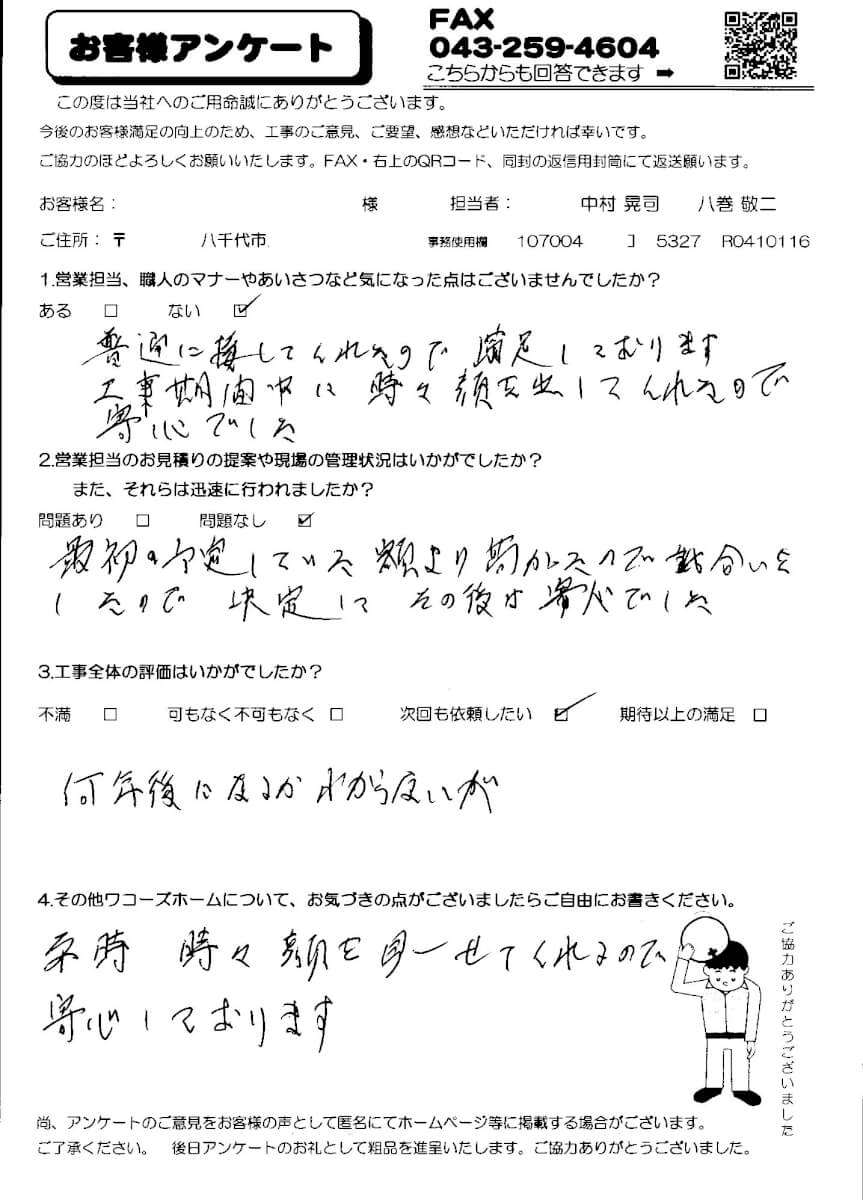 お客様アンケート
FAX
043-259-4604
こちらからも回答できます ➡
この度は当社へのご用命誠にありがとうございます。
今後のお客様満足の向上のため、工事のご意見、ご要望、感想などいただければ幸いです。
ご協力のほどよろしくお願いいたします。FAX・右上のQRコード、同封の返信用封筒にて返送願います。
お客様名： 様 担当者： 中村 晃司 八巻 敬二
ご住所：〒 八千代市 事務使用欄 107004 ] 5327 R0410116
1.営業担当、職人のマナーやあいさつなど気になった点はございませんでしたか？
ある □ ない ☑
普通に接してくれたので 満足しております
工事期間中に 時々 顔を出してくれたので
安心でした
2.営業担当のお見積りの提案や現場の管理状況はいかがでしたか？
また、それらは迅速に行われましたか？
問題あり □ 問題なし ☑
最初の予定していた 額より 高かったので 話合いを
したので 決定して その後は 安心でした
3.工事全体の評価はいかがでしたか？
不満 □ 可もなく不可もなく □ 次回も依頼したい ☑ 期待以上の満足 □
何年後になるか わからないが
4.その他ワコーズホームについて、お気づきの点がございましたらご自由にお書きください。
時々 顔を見せてくれるので
安心しております
ご協力ありがとうございました
尚、アンケートのご意見をお客様の声として匿名にてホームページ等に掲載する場合がございます。
ご了承ください。 後日アンケートのお礼として粗品を進呈いたします。ご協力ありがとうございました。